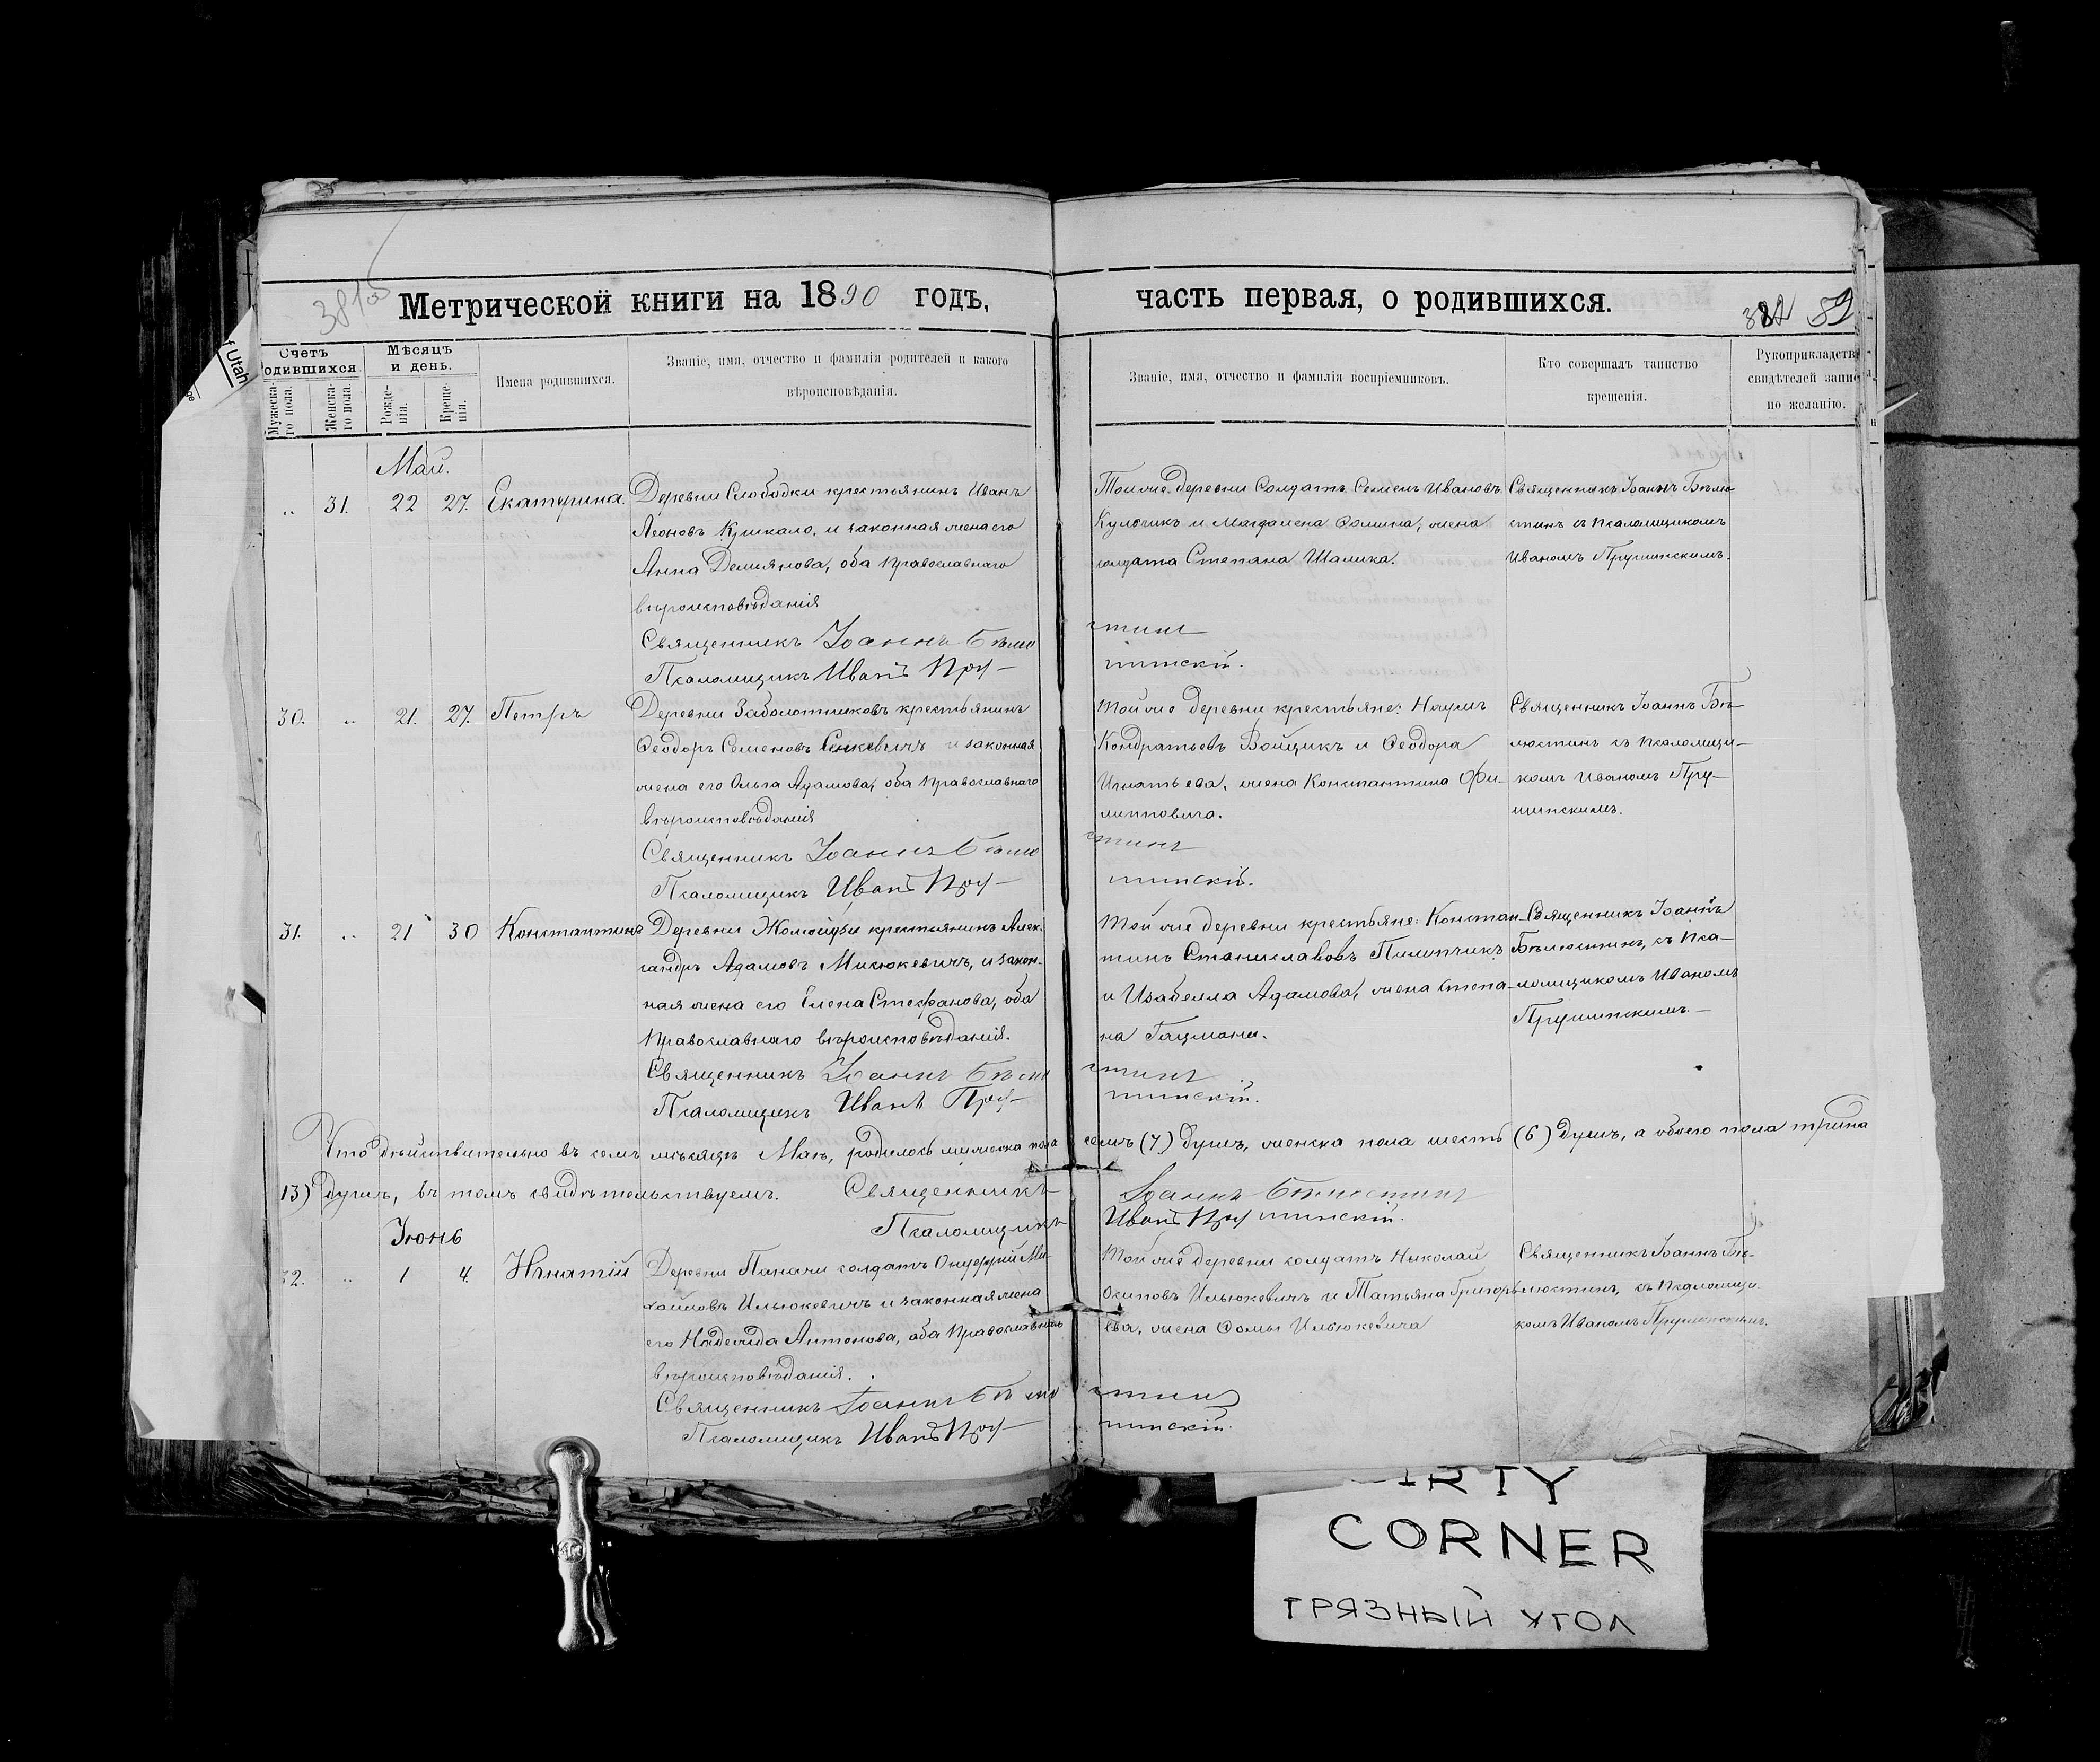 Метрической книги на 1890 годъ,
часть первая, о родившихся.
382 82
Счетъ
одившихся
Мужеска-
го пола.
Женска-
го пола.
Мѣсяцъ
и день.
Рожде-
нія.
Креще-
нія.
Имена родившихся.
Званіе, имя, отчество и фамилія родителей и какого
вѣроисповѣданія.
Званіе, имя, отчество и фамилія воспріемниковъ.
Кто совершалъ таинство
крещенія.
Рукоприкладств
свидѣтелей запис
по желанію.
Май.
„ 31. 22 27. Екатерина.
Деревни Слободки крестьянинъ Иванъ
Леоновъ и законная жена его
Анна Демьянова, оба Православнаго
вѣроисповѣданія
Священникъ Іоаннъ Бѣлю
Псаломщикъ Иванъ Пру-
Тойже деревни Солдатъ Семенъ Ивановъ
и Магдалена Ѳомина, жена
солдата Степана Шалика.
стинъ
шинскій.
Священникъ Іоаннъ Бѣлю-
стинъ съ Псаломщикомъ
Иваномъ Прушинскимъ.
30. „ 21. 27. Петръ
Деревни Заболотниковъ крестьянинъ
Ѳеодоръ Семеновъ Сенкевичъ и законная
жена его Ольга Адамова, оба Православнаго
вѣроисповѣданія
Священникъ Іоаннъ Бѣлю
Псаломщикъ Иванъ Пру-
Той же деревни крестьяне: Наумъ
Кондратьевъ Войщикъ и Ѳеодора
Игнатьева, жена Константина Фи-
липповича.
стинъ
шинскій.
Священникъ Іоаннъ Бѣ-
люстинъ съ Псаломщи-
комъ Иваномъ Пру-
шинскимъ.
31. „ 21 30 Константинъ
Деревни крестьянинъ Алек-
сандръ Адамовъ Мисюкевичъ, и закон-
ная жена его Елена Стефанова, оба
Православнаго вѣроисповѣданія.
Священникъ Іоаннъ Бѣлю
Псаломщикъ Иванъ Пру-
Той же деревни крестьяне: Констан-
тинъ Станиславовъ Пилипчикъ
и Изабелла Адамова, жена Степа-
на Гацмана.
стинъ
шинскій.
Священникъ Іоаннъ
Бѣлюстинъ, съ Пса-
ломщикомъ Иваномъ
Прушинскимъ.
Что дѣйствительно въ семъ мѣсяцѣ Маѣ, родилось мужеска пола семь (7) душъ, женска пола шесть (6) душъ, а обоего пола трина
13) душъ, въ томъ свидѣтельствуемъ. Священникъ Іоаннъ Бѣлюстинъ
Псаломщикъ Иванъ Прушинскій.
Іюнь
32. „ 1 4. Игнатій
Деревни Паначи солдатъ Онуфрій Ми-
хайловъ Ильюкевичъ и законная жена
его Надежда Антонова, оба Православнаго
вѣроисповѣданія.
Священникъ Іоаннъ Бѣлю
Псаломщикъ Иванъ Пру-
Той же деревни солдатъ Николай
Осиповъ Ильюкевичъ и Татьяна Григорь-
ева, жена Ѳомы Ильюкевича
стинъ
шинскій.
Священникъ Іоаннъ Бѣ-
люстинъ, съ Псаломщи-
комъ Иваномъ Прушинскимъ.
f Utah
CORNER
ГРЯЗНЫЙ УГОЛ